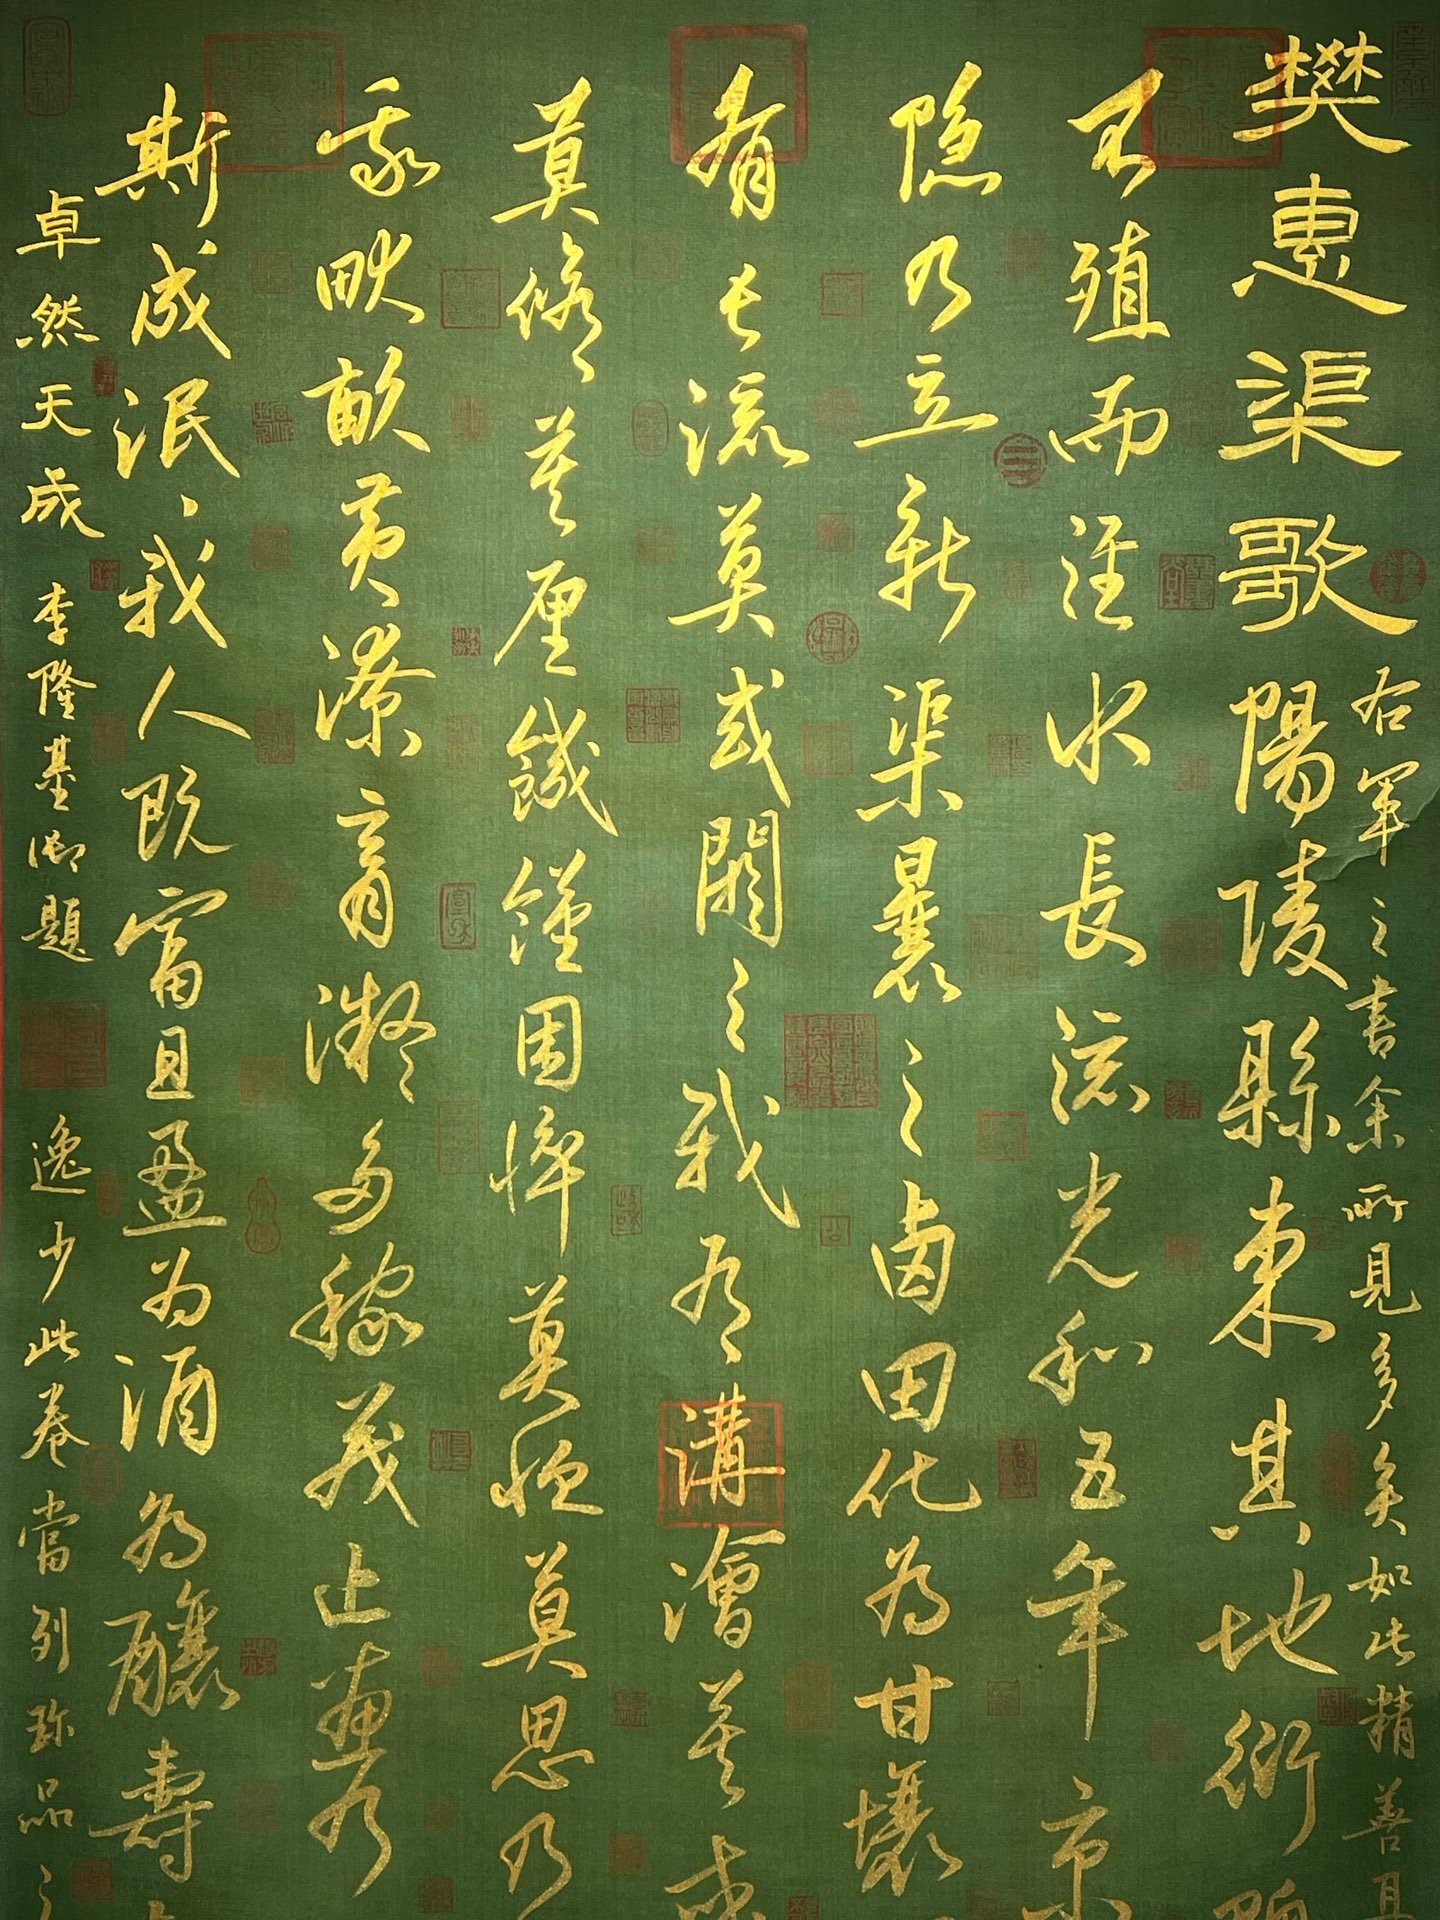 右軍之書余所見多矣如此精善且
樊惠渠歌陽陵縣東其地衍隩
不殖而注水長流光和五年京
隐乃立新渠曩之鹵田化為甘壤
有長流莫或閼之我有溝澮莫或
莫修莫釐饑饉困悴莫恤莫思乃
我畎畝黄潦育凝多稼茂止惠乃
斯成泯泯我人既富且盈為酒為釀壽
卓然天成 李隆基御題 逸少此卷當列珍品之